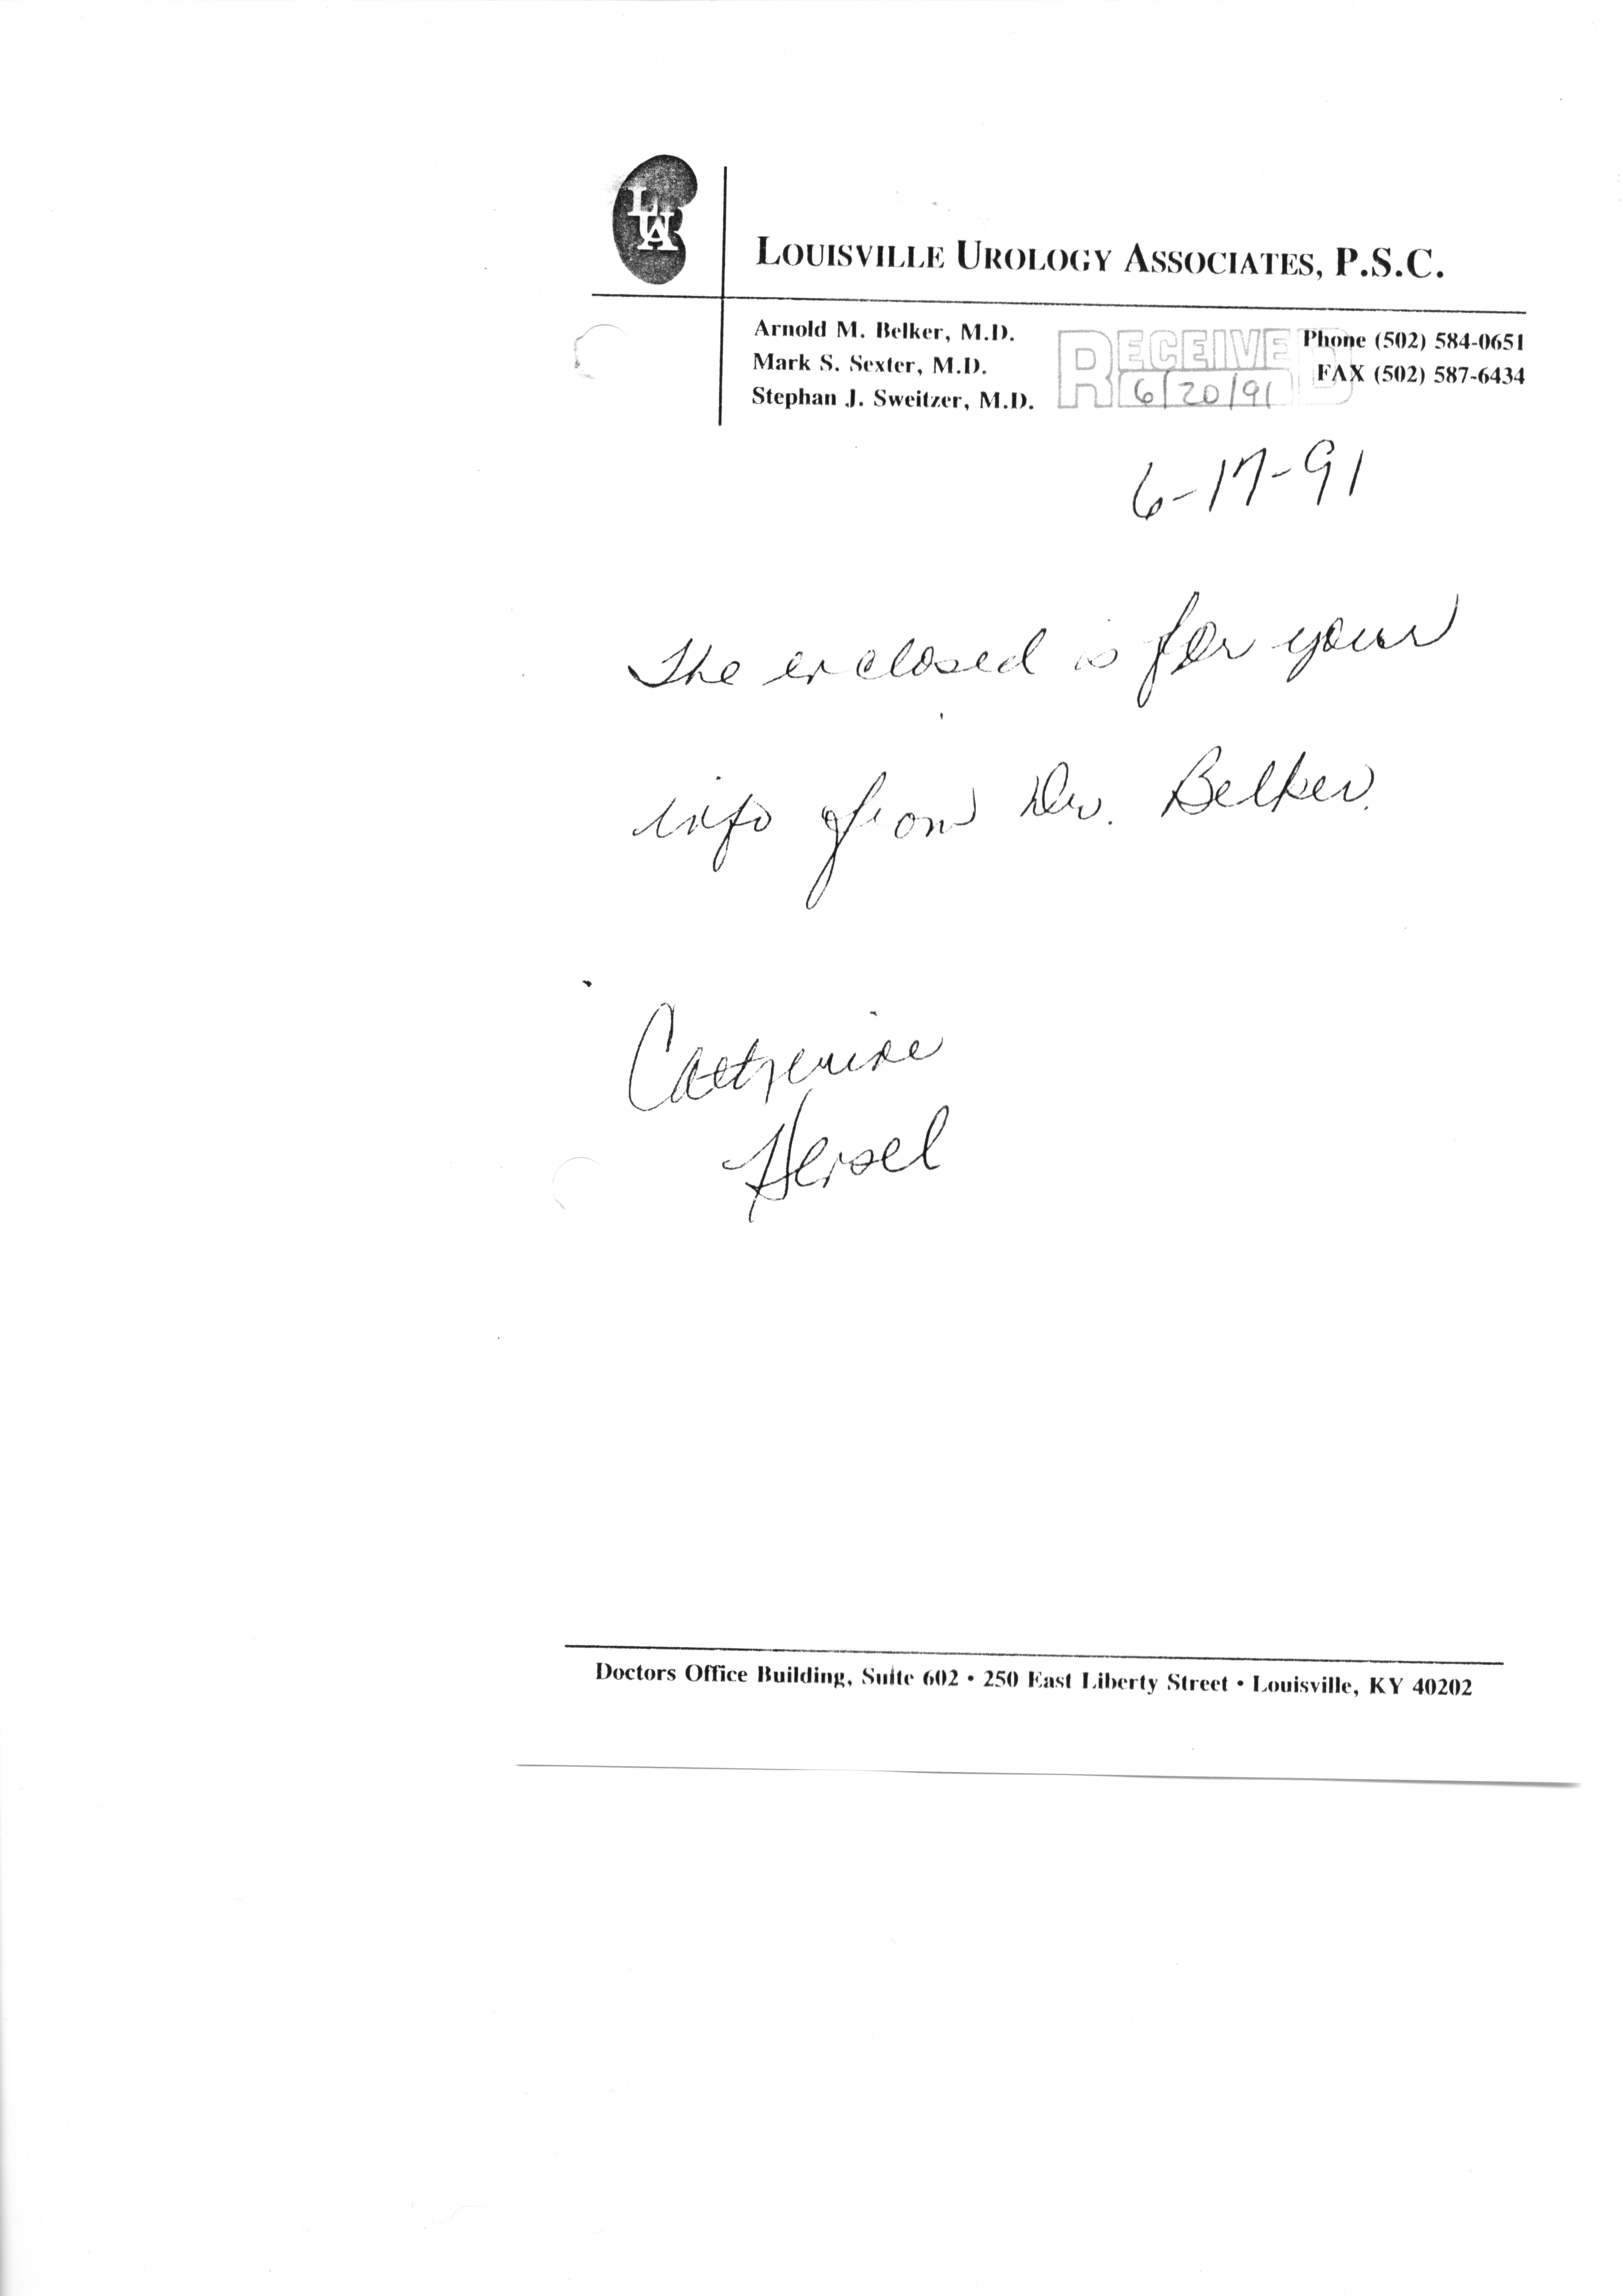 LUA
LOUISVILLE UROLOGY ASSOCIATES, P.S.C.
Arnold M. Belker, M.D.
Mark S. Sexter, M.D.
Stephan J. Sweitzer, M.D.
RECEIVED
6/20/91
Phone (502) 584-0651
FAX (502) 587-6434
6-17-91
The enclosed is for your
info from Dr. Belker.
Catherine
Hensel
Doctors Office Building, Suite 602 • 250 East Liberty Street • Louisville, KY 40202